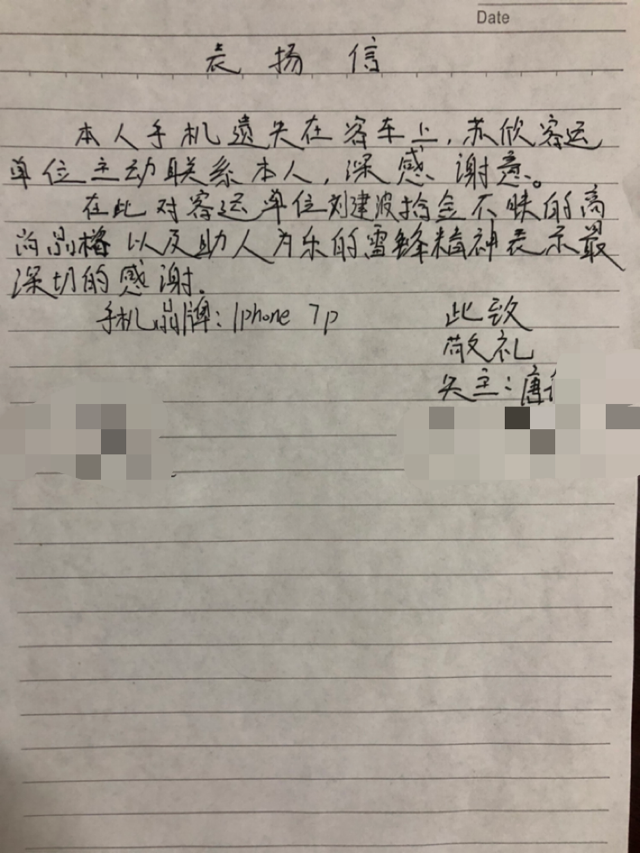 Date
表扬信
本人手机遗失在客车上,苏欣客运
单位主动联系本人,深感谢意。
在此对客运单位刘建波拾金不昧的高
尚品格以及助人为乐的雷锋精神表示最
深切的感谢.
手机品牌:Iphone 7p
此致
敬礼
失主:唐